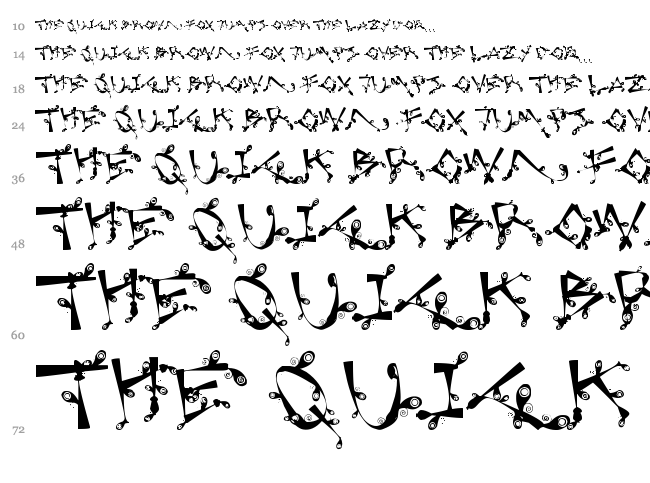 10 THE QUICK BROWN FOX JUMPS OVER THE LAZY DOG...
14 THE QUICK BROWN FOX JUMPS OVER THE LAZY DOG...
18 THE QUICK BROWN FOX JUMPS OVER THE LAZ
24 THE QUICK BROWN FOX JUMPS OV
36 THE QUICK BROWN FO
48 THE QUICK BROW
60 THE QUICK BR
72 THE QUICK